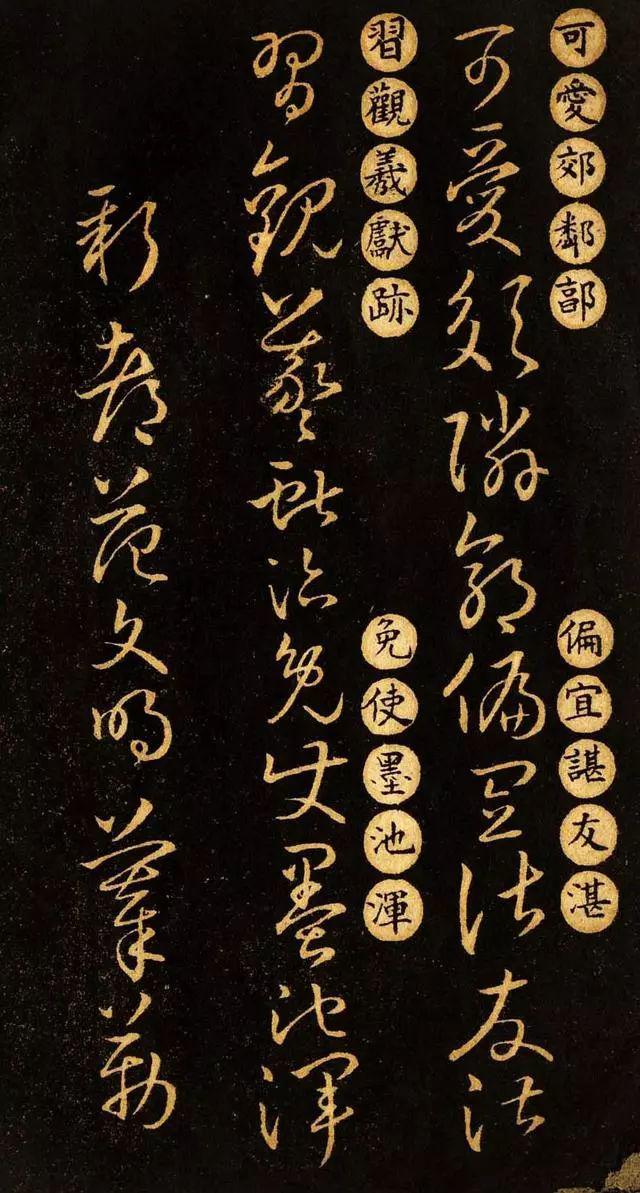 可愛郊鄰
偏宜諶友湛
可愛郊隣 偏宜諶友湛
習觀羲獻跡
免使墨池渾
習觀羲獻跡免使墨池渾
新都范文明